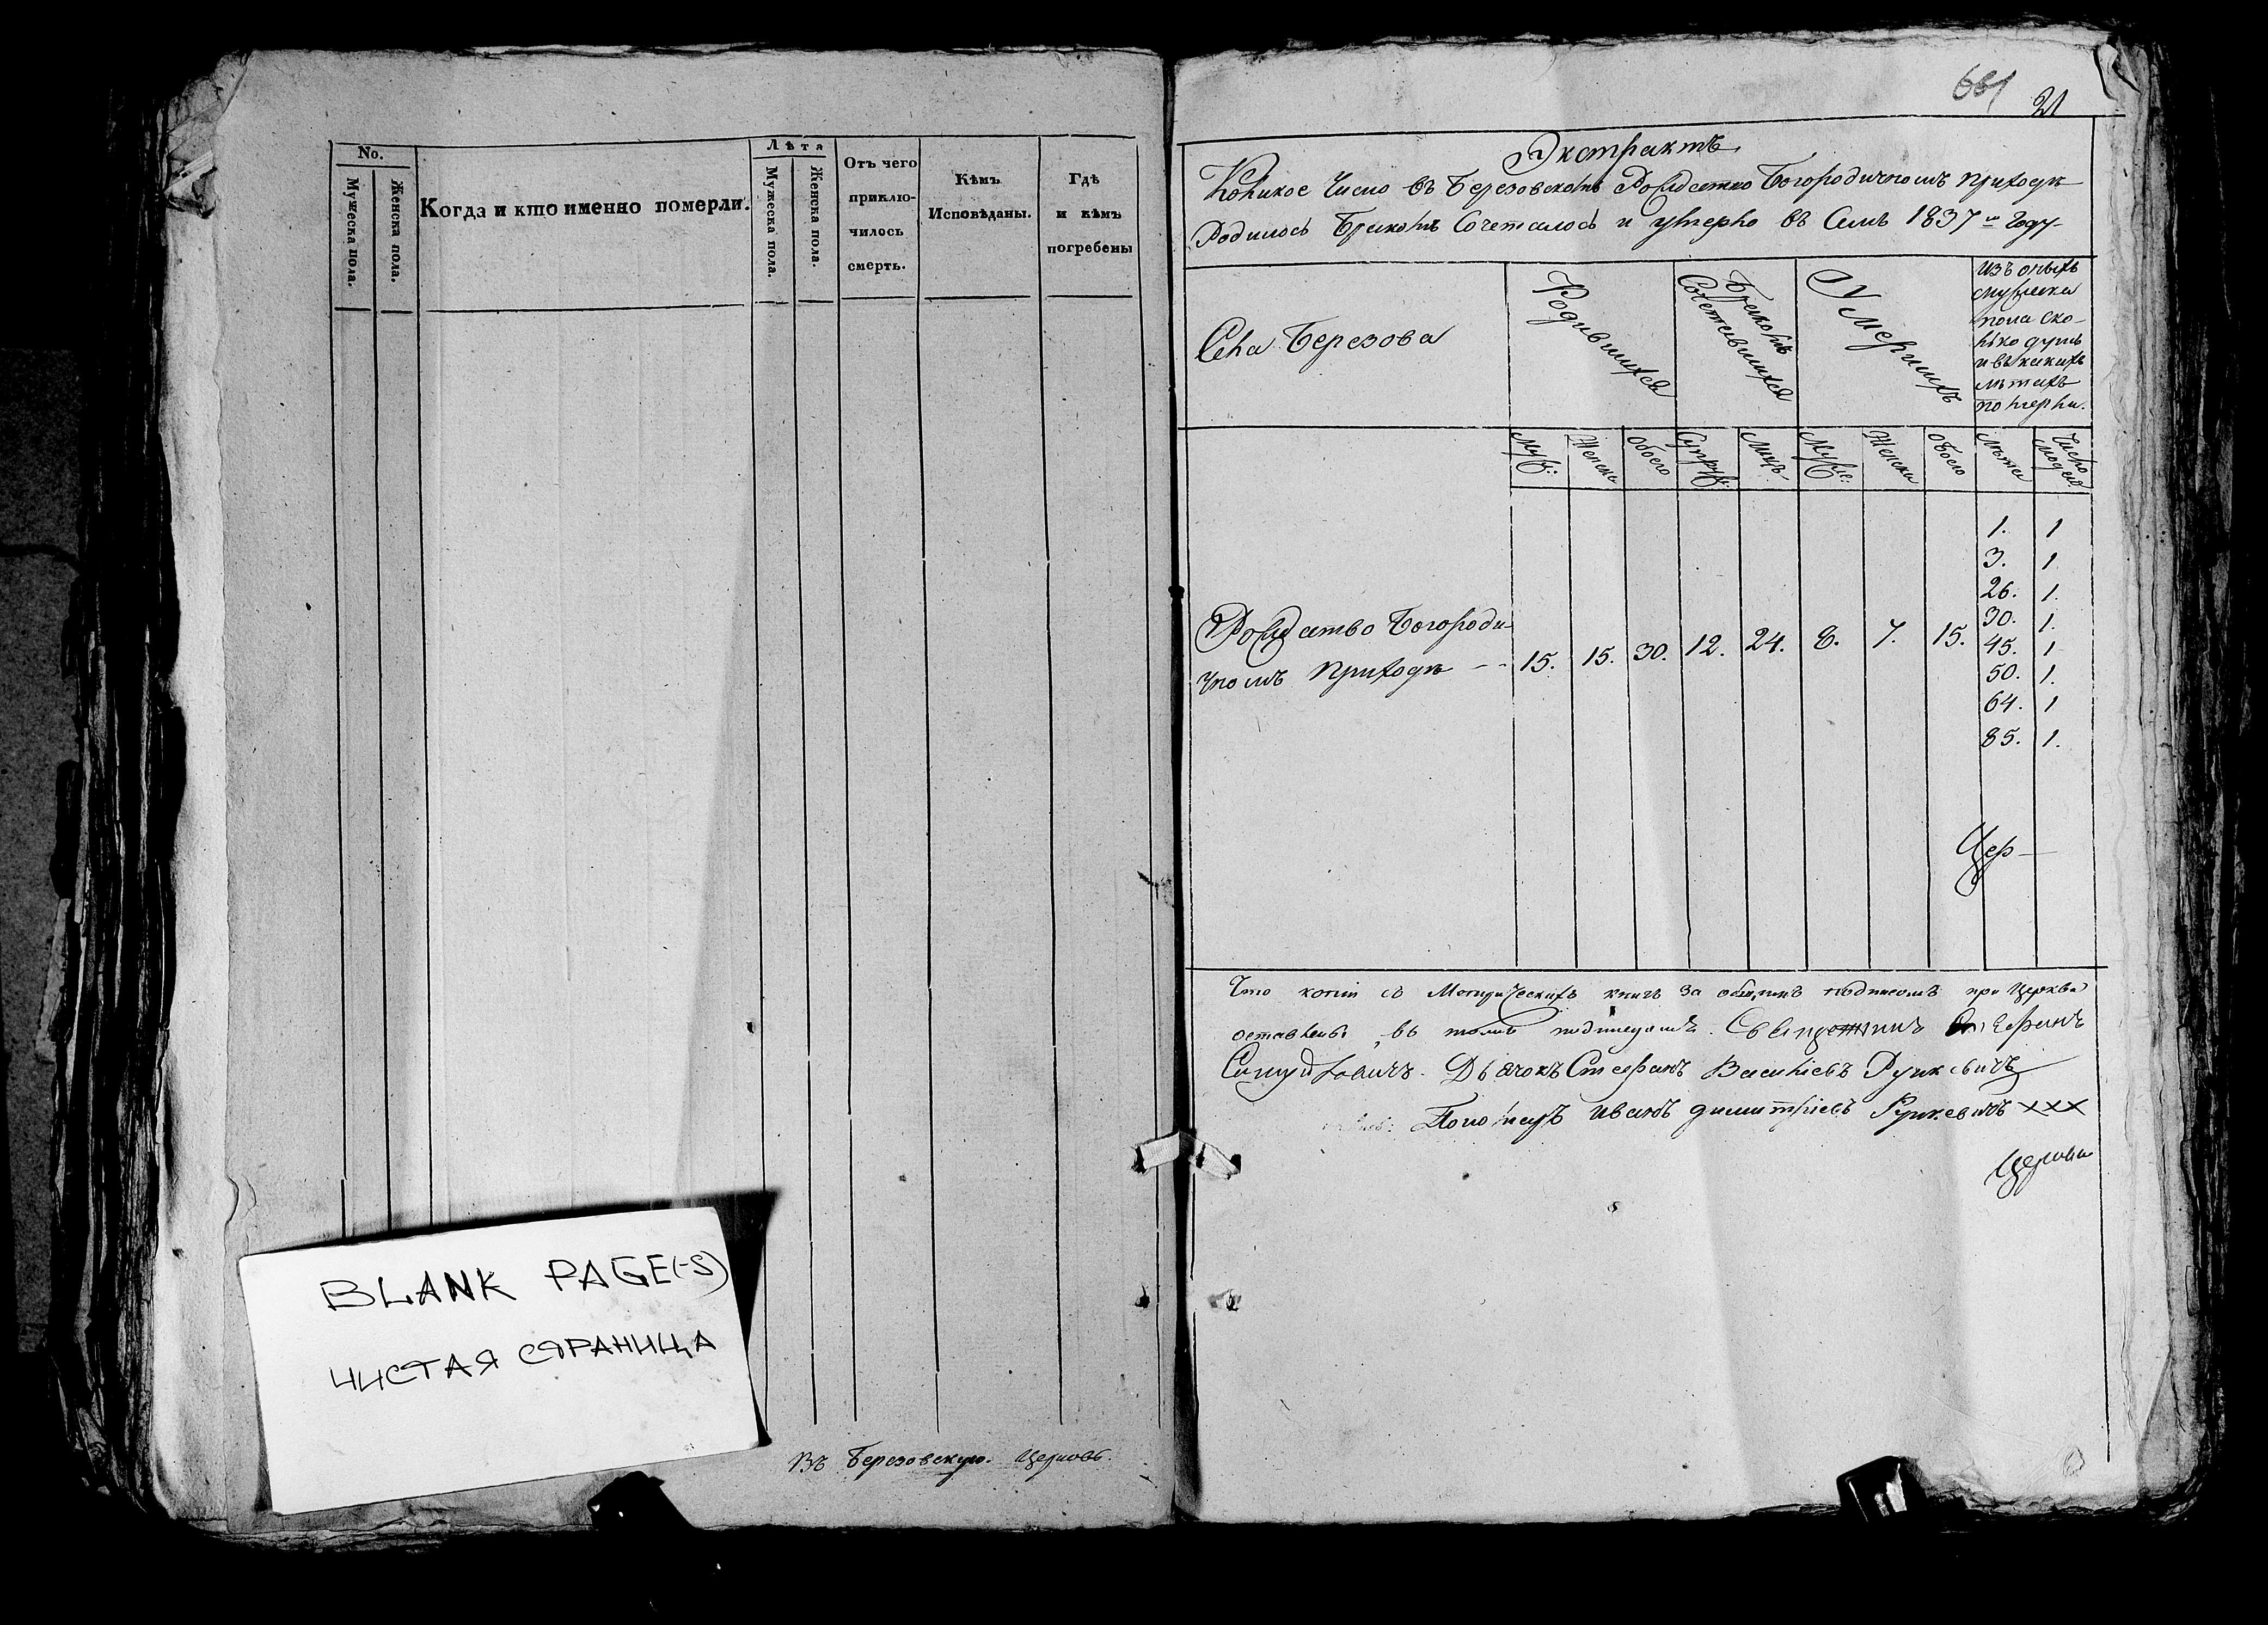 No.
Мужеска пола.
Женска пола.
Когда и кто именно померли.
Лѣта
Мужеска пола.
Женска пола.
Отъ чего
приклю-
чилось
смерть.
Кѣмъ
Исповѣданы.
Гдѣ
и кѣмъ
погребены
BLANK PAGE(-S)
ЧИСТАЯ СТРАНИЦА
Въ Березовскую Церковь.
661
21
Экстрактъ
Коликое Число въ Березовскомъ Рождество Богородичномъ приходѣ
Родилось Бракомъ Сочеталось и умерло въ Семъ 1837 м году
Села Березова
Родившихся
Бракомъ
Сочетавшихся
Умершихъ
изъ оныхъ
мужеска
пола ско-
лько душъ
и въ какихъ
лѣтахъ
померли.
Муж:
Женска
обоего
Супруж:
Лицъ
Муже:
Женска
обоего
Лѣта
Число
людей
Рождество Богороди-
чномъ приходѣ - -
15. 15. 30. 12. 24. 8. 7. 15.
1. 1
3. 1
26. 1.
30. 1.
45. 1
50. 1.
64. 1
85. 1.
Цер-
Что копіи съ Метрическихъ книгъ за общимъ подписомъ при Церкви
оставлены, въ томъ подписуемся. Стефанъ
Дьячокъ Стефанъ Васильевъ Ружкевичъ
Пономарь Иванъ димитріевъ Ружкевичъ ххх
Церкви